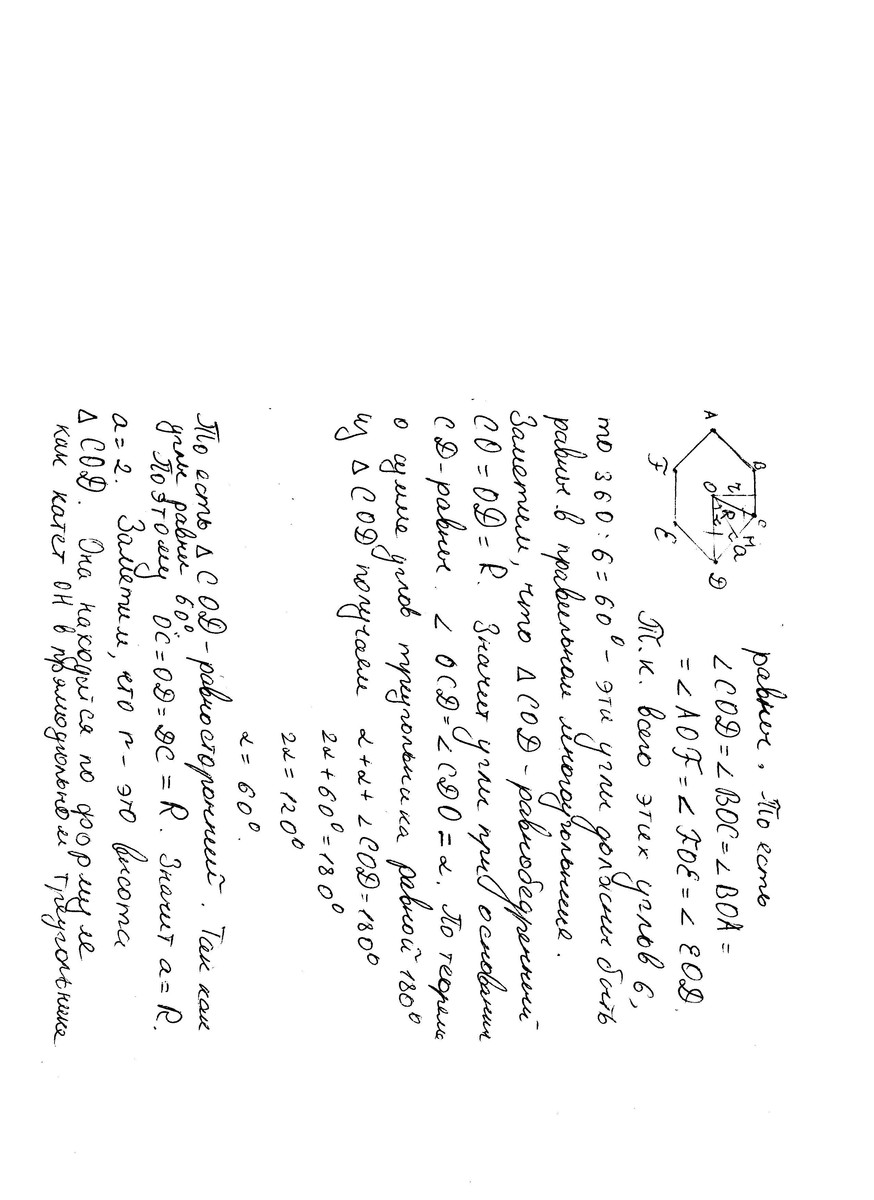 равны, То есть
∠COD=∠BOC=∠BOA=
=∠AOF=∠FOE=∠EOD.
Т.к. всего этих углов 6,
A B C H a D E F O r R α
то 360:6=60° - эти углы должны быть
равны в правильном многоугольнике.
Заметим, что △COD - равнобедренный
CO=OD=R. Значит углы при основании
CD-равны. ∠OCD=∠CDO=α. По теореме
о сумме углов треугольника равной 180°
из △COD получаем α+α+∠COD=180°
2α+60°=180°
2α=120°
α=60°.
То есть △COD-равносторонний. Так как
углы равны 60°.
Поэтому OC=OD=DC=R. Значит a=R.
a=2. Заметим, что r- это высота
△COD. Она находится по формуле
как катет OH в прямоугольном треугольнике